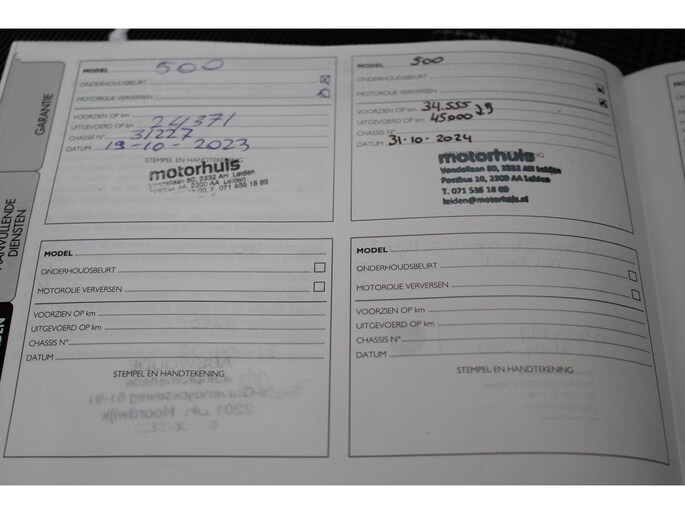 GARANTIE
AANVULLENDE
DIENSTEN
MODEL 500
ONDERHOUDSBEURT
MOTOROLIE VERVERSEN
VOORZIEN OP km
UITGEVOERD OP km 24371
CHASSIS N° 31227
DATUM 19-10-2023
STEMPEL EN HANDTEKENING
motorhuis
2332 AH Leiden
2300 AA Leiden
MODEL 500
ONDERHOUDSBEURT
MOTOROLIE VERVERSEN
VOORZIEN OP km 34.555
UITGEVOERD OP km 45000
CHASSIS N°
DATUM 31-10-2024
STEMPEL EN HANDTEKENING
motorhuis
Vondellaan 80, 2332 AH Leiden
Postbus 10, 2300 AA Leiden
T. 071 535 18 00
leiden@motorhuis.nl
MODEL
ONDERHOUDSBEURT
MOTOROLIE VERVERSEN
VOORZIEN OP km
UITGEVOERD OP km
CHASSIS N°
DATUM
STEMPEL EN HANDTEKENING
MODEL
ONDERHOUDSBEURT
MOTOROLIE VERVERSEN
VOORZIEN OP km
UITGEVOERD OP km
CHASSIS N°
DATUM
STEMPEL EN HANDTEKENING